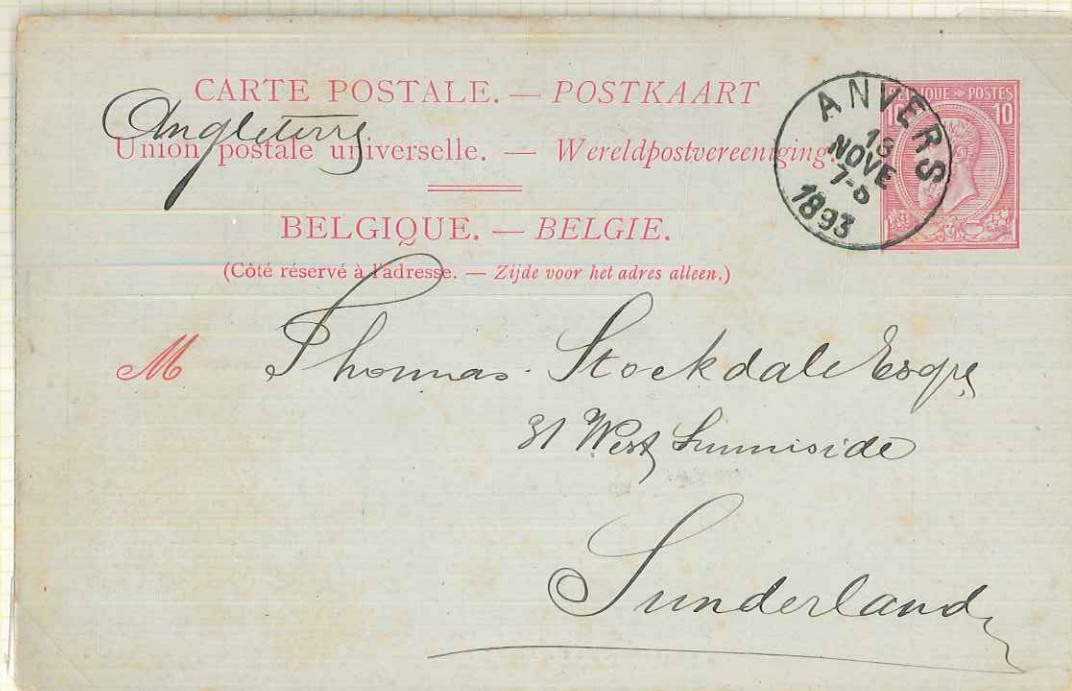 CARTE POSTALE. — POSTKAART
Angleterre
Union postale universelle. — Wereldpostvereeniging.
BELGIQUE. — BELGIE.
(Côté réservé à l'adresse. — Zijde voor het adres alleen.)
BELGIQUE POSTES
10 10
ANVERS
NOVE
1893
M Thomas Stockdale Esqre
31 West Sunniside
Sunderland